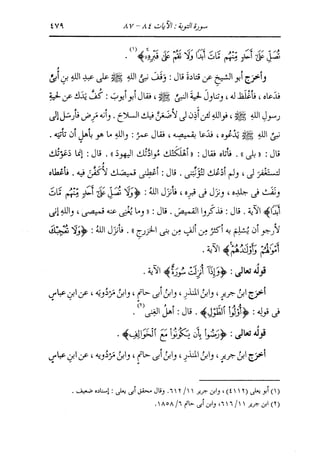 سورة التوبة : الآيات ٨٤ - ٨٧ ٤٧٩
تُصَلِّ عَلَىٰٓ أَحَدٍ مِّنْهُم مَّاتَ أَبَدًا وَلَا تَقُمْ عَلَىٰ قَبْرِهِ﴾(١).
وأخرَج أبو الشيخِ عن قتادةَ قال : وقَف نبىُّ اللهِ ﷺ على عبدِ اللهِ بنِ أُبَىٍّ
فدعاه ، فأغلَظ له ، وتناوَل لحيةَ النبىِّ ﷺ ، فقال أبو أيوبَ : كُفَّ يدَك عن لحيةِ
رسولِ اللهِ ﷺ ، فواللهِ لئن أذِن لى لأضعَنَّ فيك السلاحَ . وأنه مرِض فأرسَل إلى
نبىِّ اللهِ ﷺ يدْعُوه ، فدعا بقميصِه ، فقال عمرُ : واللهِ ما هو بأهلٍ أن تأتيَه .
قال : « بلى » . فأتاه فقال : « أهلَكَتْك موادَّتُك اليهودَ » . قال : إنما دعَوتُك
لتستغفرَ لى ، ولم أدْعُك لتُؤنِّبَنى . قال : أعطِنى قميصَك لأُكفَّنَ فيه . فأعطاه
ونفَث فى جلدِه ، ونزَل فى قبرِه ، فأنزَل اللهُ : ﴿وَلَا تُصَلِّ عَلَىٰٓ أَحَدٍ مِّنْهُم مَّاتَ
أَبَدًا﴾ الآية . قال : فذكَروا القميصَ . قال : « وما يُغْنى عنه قميصى ، واللهِ إنى
لأرجو أن يُسْلِمَ به أكثرُ مِن ألفٍ مِن بنى الخزرجِ » . فأنزَل اللهُ : ﴿وَلَا تُعْجِبْكَ
أَمْوَٰلُهُمْ وَأَوْلَٰدُهُمْ﴾ الآية .
قولُه تعالى : ﴿وَإِذَآ أُنزِلَتْ سُورَةٌ﴾ الآية .
أخرَج ابنُ جريرٍ ، وابنُ المنذرِ ، وابنُ أبى حاتمٍ ، وابنُ مَرْدُويَه ، عن ابنِ عباسٍ
فى قولِه : ﴿أُوْلُواْ ٱلطَّوْلِ﴾ . قال : أهلُ الغِنى(٢) .
قولُه تعالى : ﴿رَضُواْ بِأَن يَكُونُواْ مَعَ ٱلْخَوَالِفِ﴾ .
أخرَج ابنُ جريرٍ ، وابنُ المنذرِ ، وابنُ أبى حاتمٍ ، وابنُ مَرْدُويَه ، عن ابنِ عباسٍ
(١) أبو يعلى (٤١١٢) ، وابن جرير ١١/ ٦١٢. وقال محقق أبى يعلى : إسناده ضعيف .
(٢) ابن جرير ١١/ ٦١٦، وابن أبى حاتم ٦/ ١٨٥٨.